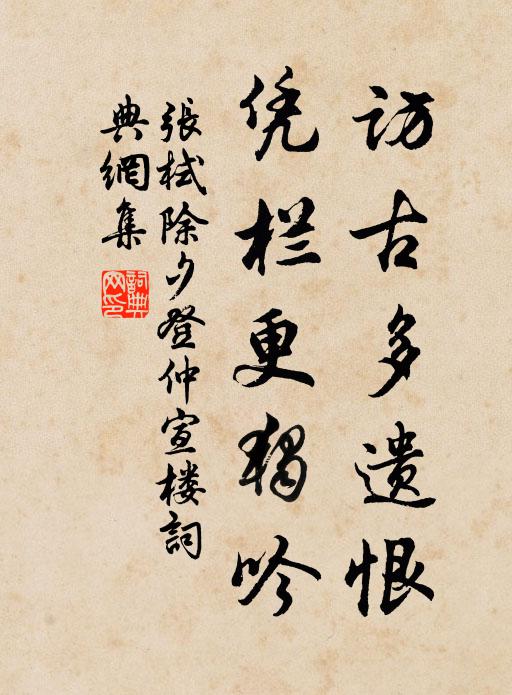 访古多遗恨
凭栏更獨吟
張栻除夕登仲宣楼詞
典網集
詞典
网印